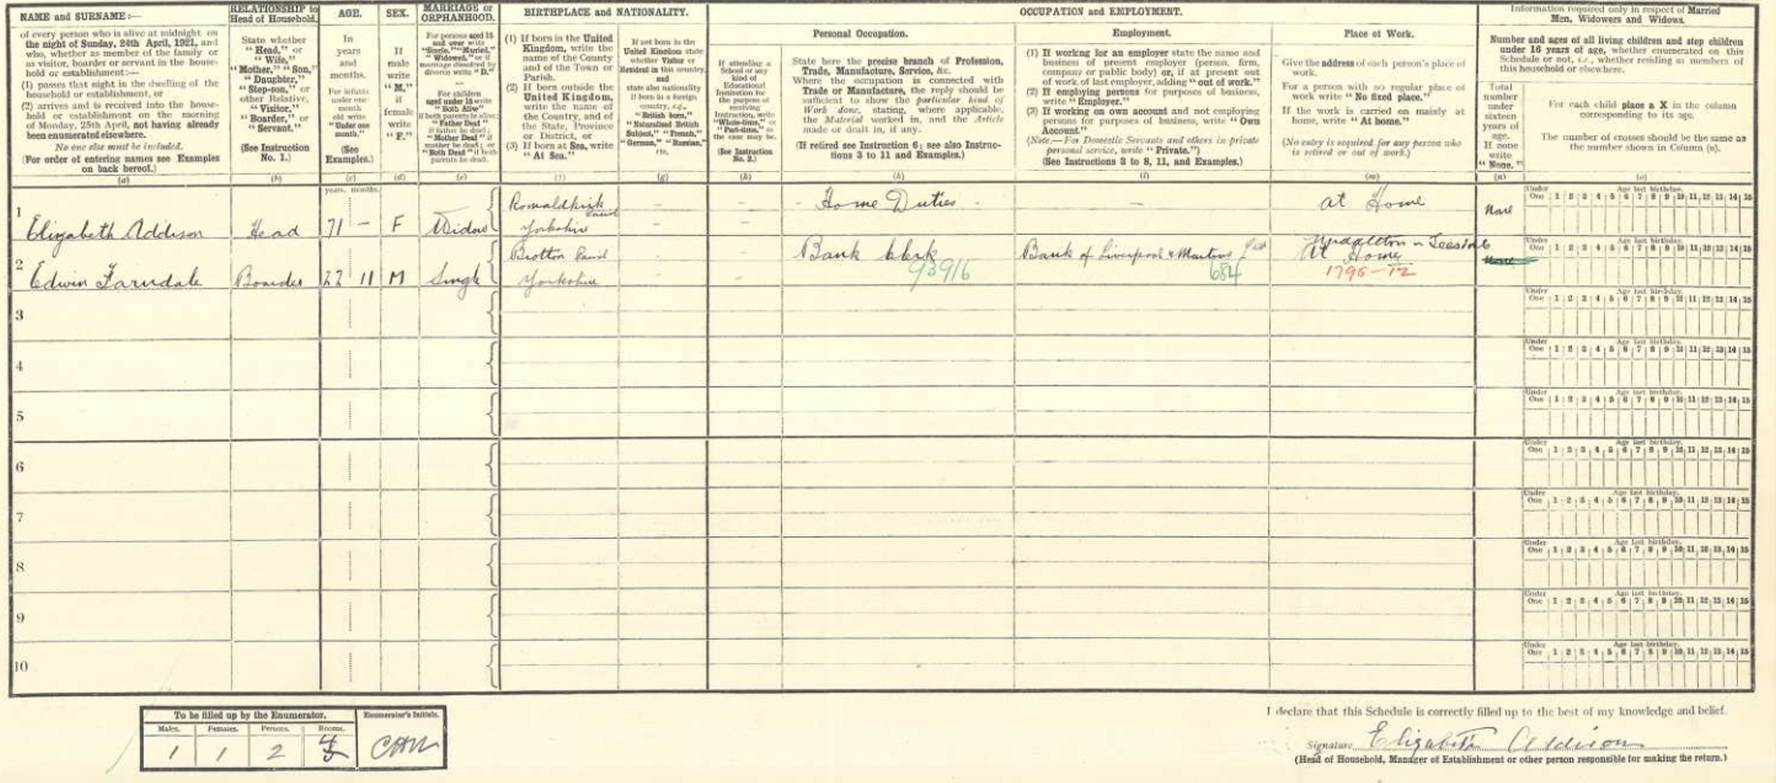 NAME and SURNAME :—
of every person who is alive at midnight on
the night of Sunday, 24th April, 1921, and
who, whether as member of the family or
as visitor, boarder or servant in the house-
hold or establishment :—
(1) passes that night in the dwelling of the
household or establishment, or
(2) arrives and is received into the house-
hold or establishment on the morning
of Monday, 25th April, not having already
been enumerated elsewhere.
No one else must be included.
(For order of entering names see Examples
on back hereof.)
(a)
RELATIONSHIP to
Head of Household.
State whether
"Head," or
"Wife,"
"Mother," "Son,"
"Daughter,"
"Step-son," or
other Relative,
"Visitor,"
"Boarder," or
"Servant."
(See Instruction
No. 1.)
(b)
AGE.
In
years
and
months.
For infants
under one
month
old write
"Under one
month."
(See
Examples.)
(c)
SEX.
If
male
write
"M,"
if
female
write
"F."
(d)
MARRIAGE or
ORPHANHOOD.
For persons aged 15
and over write
"Single," "Married,"
"Widowed," or if
marriage dissolved by
divorce write "D."
For children
aged under 15 write
if both parents be alive
"Both Alive"
"Father Dead"
if father be dead ;
"Mother Dead" if
mother be dead ; or
"Both Dead" if both
parents be dead.
(e)
BIRTHPLACE and NATIONALITY.
(1) If born in the United
Kingdom, write the
name of the County
and of the Town or
Parish.
(2) If born outside the
United Kingdom,
write the name of
the Country, and of
the State, Province
or District, or
(3) If born at Sea, write
"At Sea."
(f)
If not born in the
United Kingdom state
whether Visitor or
Resident in this country,
and
state also nationality
if born in a foreign
country, e.g.,
"British born,"
"Naturalised British
Subject," "French,"
"German," "Russian,"
etc.
(g)
If attending a
School or any
kind of
Educational
Institution for
the purpose of
receiving
Instruction, write
"Whole-time," or
"Part-time," as
the case may be.
(See Instruction
No. 2.)
(h)
OCCUPATION and EMPLOYMENT.
Personal Occupation.
State here the precise branch of Profession,
Trade, Manufacture, Service, &c.
Where the occupation is connected with
Trade or Manufacture, the reply should be
sufficient to show the particular kind of
Work done, stating, where applicable,
the Material worked in, and the Article
made or dealt in, if any.
(If retired see Instruction 6 ; see also Instruc-
tions 3 to 11 and Examples.)
(k)
Employment.
(1) If working for an employer state the name and
business of present employer (person, firm,
company or public body) or, if at present out
of work, of last employer, adding "out of work."
(2) If employing persons for purposes of business,
write "Employer."
(3) If working on own account and not employing
persons for purposes of business, write "Own
Account."
(Note.—For Domestic Servants and others in private
personal service, write "Private.")
(See Instructions 3 to 8, 11, and Examples.)
(l)
Place of Work.
Give the address of each person's place of
work.
For a person with no regular place of
work write "No fixed place."
If the work is carried on mainly at
home, write "At home."
(No entry is required for any person who
is retired or out of work.)
(m)
Information required only in respect of Married
Men, Widowers and Widows.
Number and ages of all living children and step children
under 16 years of age, whether enumerated on this
Schedule or not, i.e., whether residing as members of
this household or elsewhere.
Total
number
under
sixteen
years of
age.
If none
write
"None."
(n)
For each child place a X in the column
corresponding to its age.
The number of crosses should be the same as
the number shown in Column (n).
(o)
years. months.
1 Elizabeth Addison Head 71 – F Widow Romaldkirk Yorkshire – – Home Duties – at Home None
2 Edwin Farndale Boarder 22 11 M Single Brotton Yorkshire – – Bank Clerk 939/6 Bank of Liverpool & Martins 684 Middleton in Teesdale At Home 1796-12
3
4
5
6
7
8
9
10
Under One Age last birthday. 1 2 3 4 5 6 7 8 9 10 11 12 13 14 15
Under One Age last birthday. 1 2 3 4 5 6 7 8 9 10 11 12 13 14 15
Under One Age last birthday. 1 2 3 4 5 6 7 8 9 10 11 12 13 14 15
Under One Age last birthday. 1 2 3 4 5 6 7 8 9 10 11 12 13 14 15
Under One Age last birthday. 1 2 3 4 5 6 7 8 9 10 11 12 13 14 15
Under One Age last birthday. 1 2 3 4 5 6 7 8 9 10 11 12 13 14 15
Under One Age last birthday. 1 2 3 4 5 6 7 8 9 10 11 12 13 14 15
Under One Age last birthday. 1 2 3 4 5 6 7 8 9 10 11 12 13 14 15
Under One Age last birthday. 1 2 3 4 5 6 7 8 9 10 11 12 13 14 15
Under One Age last birthday. 1 2 3 4 5 6 7 8 9 10 11 12 13 14 15
To be filled up by the Enumerator.
Males. Females. Persons. Rooms.
1 1 2
Enumerator's Initials.
I declare that this Schedule is correctly filled up to the best of my knowledge and belief.
Signature Elizabeth Addison
(Head of Household, Manager of Establishment or other person responsible for making the return.)